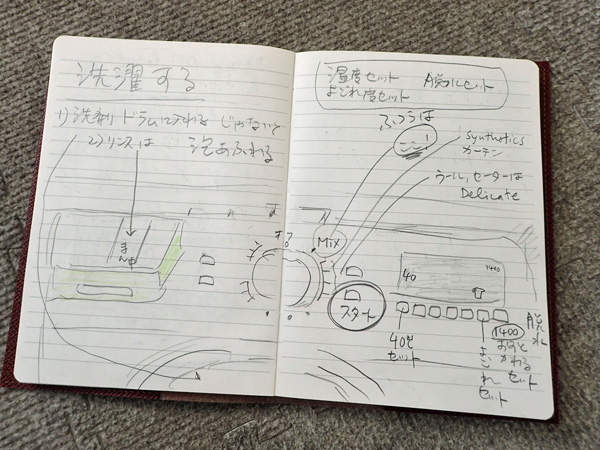 洗濯する
1) 洗剤 ドラムに入れる じゃないと
2) リンスは 泡あふれる
まん中
温度セット 脱水セット
よごれ度セット
ふつうは
ここ!
Synthetics
カーテン
ウール、セーターは
Delicate
オフ
Mix
40
1400
スタート
40℃
セット
よごれ
セット
1400
おすと
かわる
セット
脱水
セット